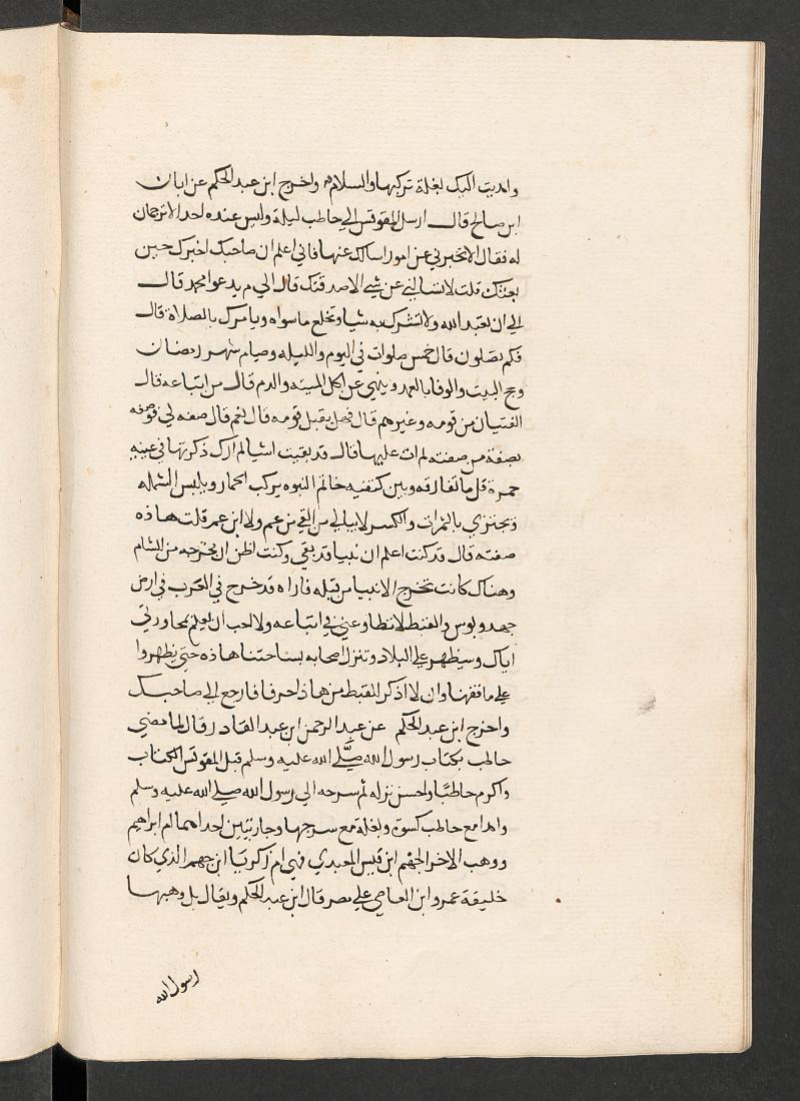 واهديت اليك بغلة تركبها والسلام واخرج ابن عبد الحكم عن ابان
ابن صالح قال ارسل المقوقس الي حاطب ليلة وليس عنده احد الا ترجمان
له فقال الا تخبرني عن امور اسالك عنها فاني اعلم ان صاحبك اخبرك حين
بعثك قلت لا تسالني عن شي الا صدقتك قال الي م يدعوا محمد قال
الي ان نعبد الله ولا نشرك به شيا ونخلع ما سواه ويامرك بالصلاة قال
فكم تصلون قال خمس صلوات في اليوم والليله وصيام شهر رمضان
وحج البيت والوفا بالعهد وينهي عن اكل الميته والدم قال من اتباعه قال
الفتيان من قومه وغيرهم قال فهل يقبل قومه قال نعم قال صفه لي فوصفه
بصفة من صفته لم ات عليها قال قد بقيت اشيا لم ارك ذكرتها في عينيه
حمرة قل ما تفارقه وبين كتفيه خاتم النبوه يركب الحمار ويلبس الشمله
ويجتزي بالتمرات والكسر لا يبالي من لقي من عم ولا ابن عم قلت هاذه
صفته قال قد كنت اعلم ان نبيا قد بقي وكنت اظن ان مخرجه من الشام
وهناك كانت تخرج الانبيا من قبله فاراه قد خرج في العرب في ارض
جهد وبوس والقبط لا تطاوعني في اتباعه ولا احب ان يعلم بمحاورتي
اياك وسيظهر علي البلاد وتنزل اصحابه بساحتنا هاذه حتي يظهروا
علي ما ههنا وان لا اذكر للقبط من هاذا حرفا فارجع الي صاحبك
واخرج ابن عبد الحكم عن عبد الرحمن ابن عبد القادر قال لما مضي
حاطب بكتاب رسول الله صلي الله عليه وسلم قبل المقوقس الكتاب
واكرم حاطبا واحسن نزله ثم سرحه الي رسول الله صلي الله عليه وسلم
واهدا مع حاطب كسوة وبغلة مع سرجها وجاريتين احداهما ام ابراهيم
ووهب الاخرا لجهم ابن قيس العبدي فهي ام زكريا ابن جهم الذي كان
خليفة عمرو ابن العاصي علي مصر قال ابن عبد الحكم ويقال بل وهبها
رسول الله